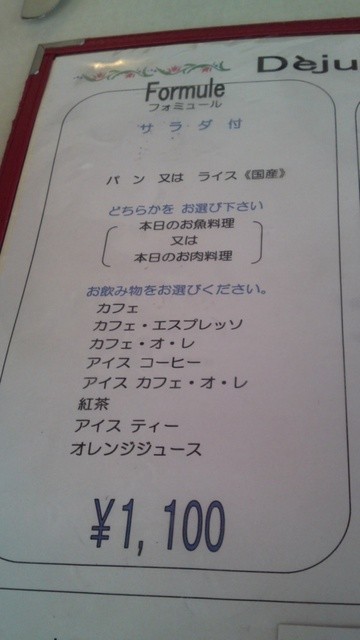 Déju
Formule
フォミュール
サラダ付
パン 又は ライス《国産》
どちらかを お選び下さい
本日のお魚料理
又は
本日のお肉料理
お飲み物をお選びください。
カフェ
カフェ・エスプレッソ
カフェ・オ・レ
アイス コーヒー
アイス カフェ・オ・レ
紅茶
アイス ティー
オレンジジュース
¥1,100